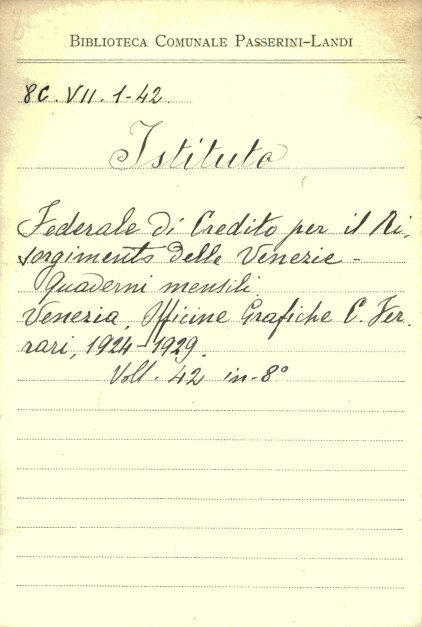 BIBLIOTECA COMUNALE PASSERINI-LANDI
8C. VII. 1-42
Istituto
Federale di Credito per il Ri,
sorgimento delle Venezie -
Quaderni mensili
Venezia, Officine Grafiche C. Fer,
rari, 1924-1929.
Voll. 42 in-8°